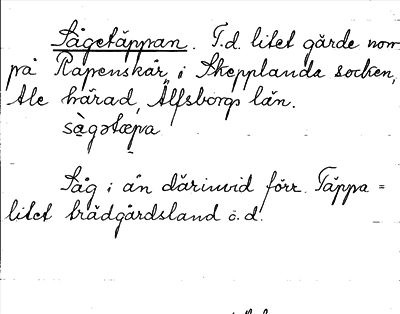 Sågetäppan. T.d. litet gärde norr
på Rapenskår, i Skepplanda socken,
Ale härad, Älfsborgs län.
sàgətæpa
Såg i ån därinvid förr. Täppa =
litet trädgårdsland o.d.